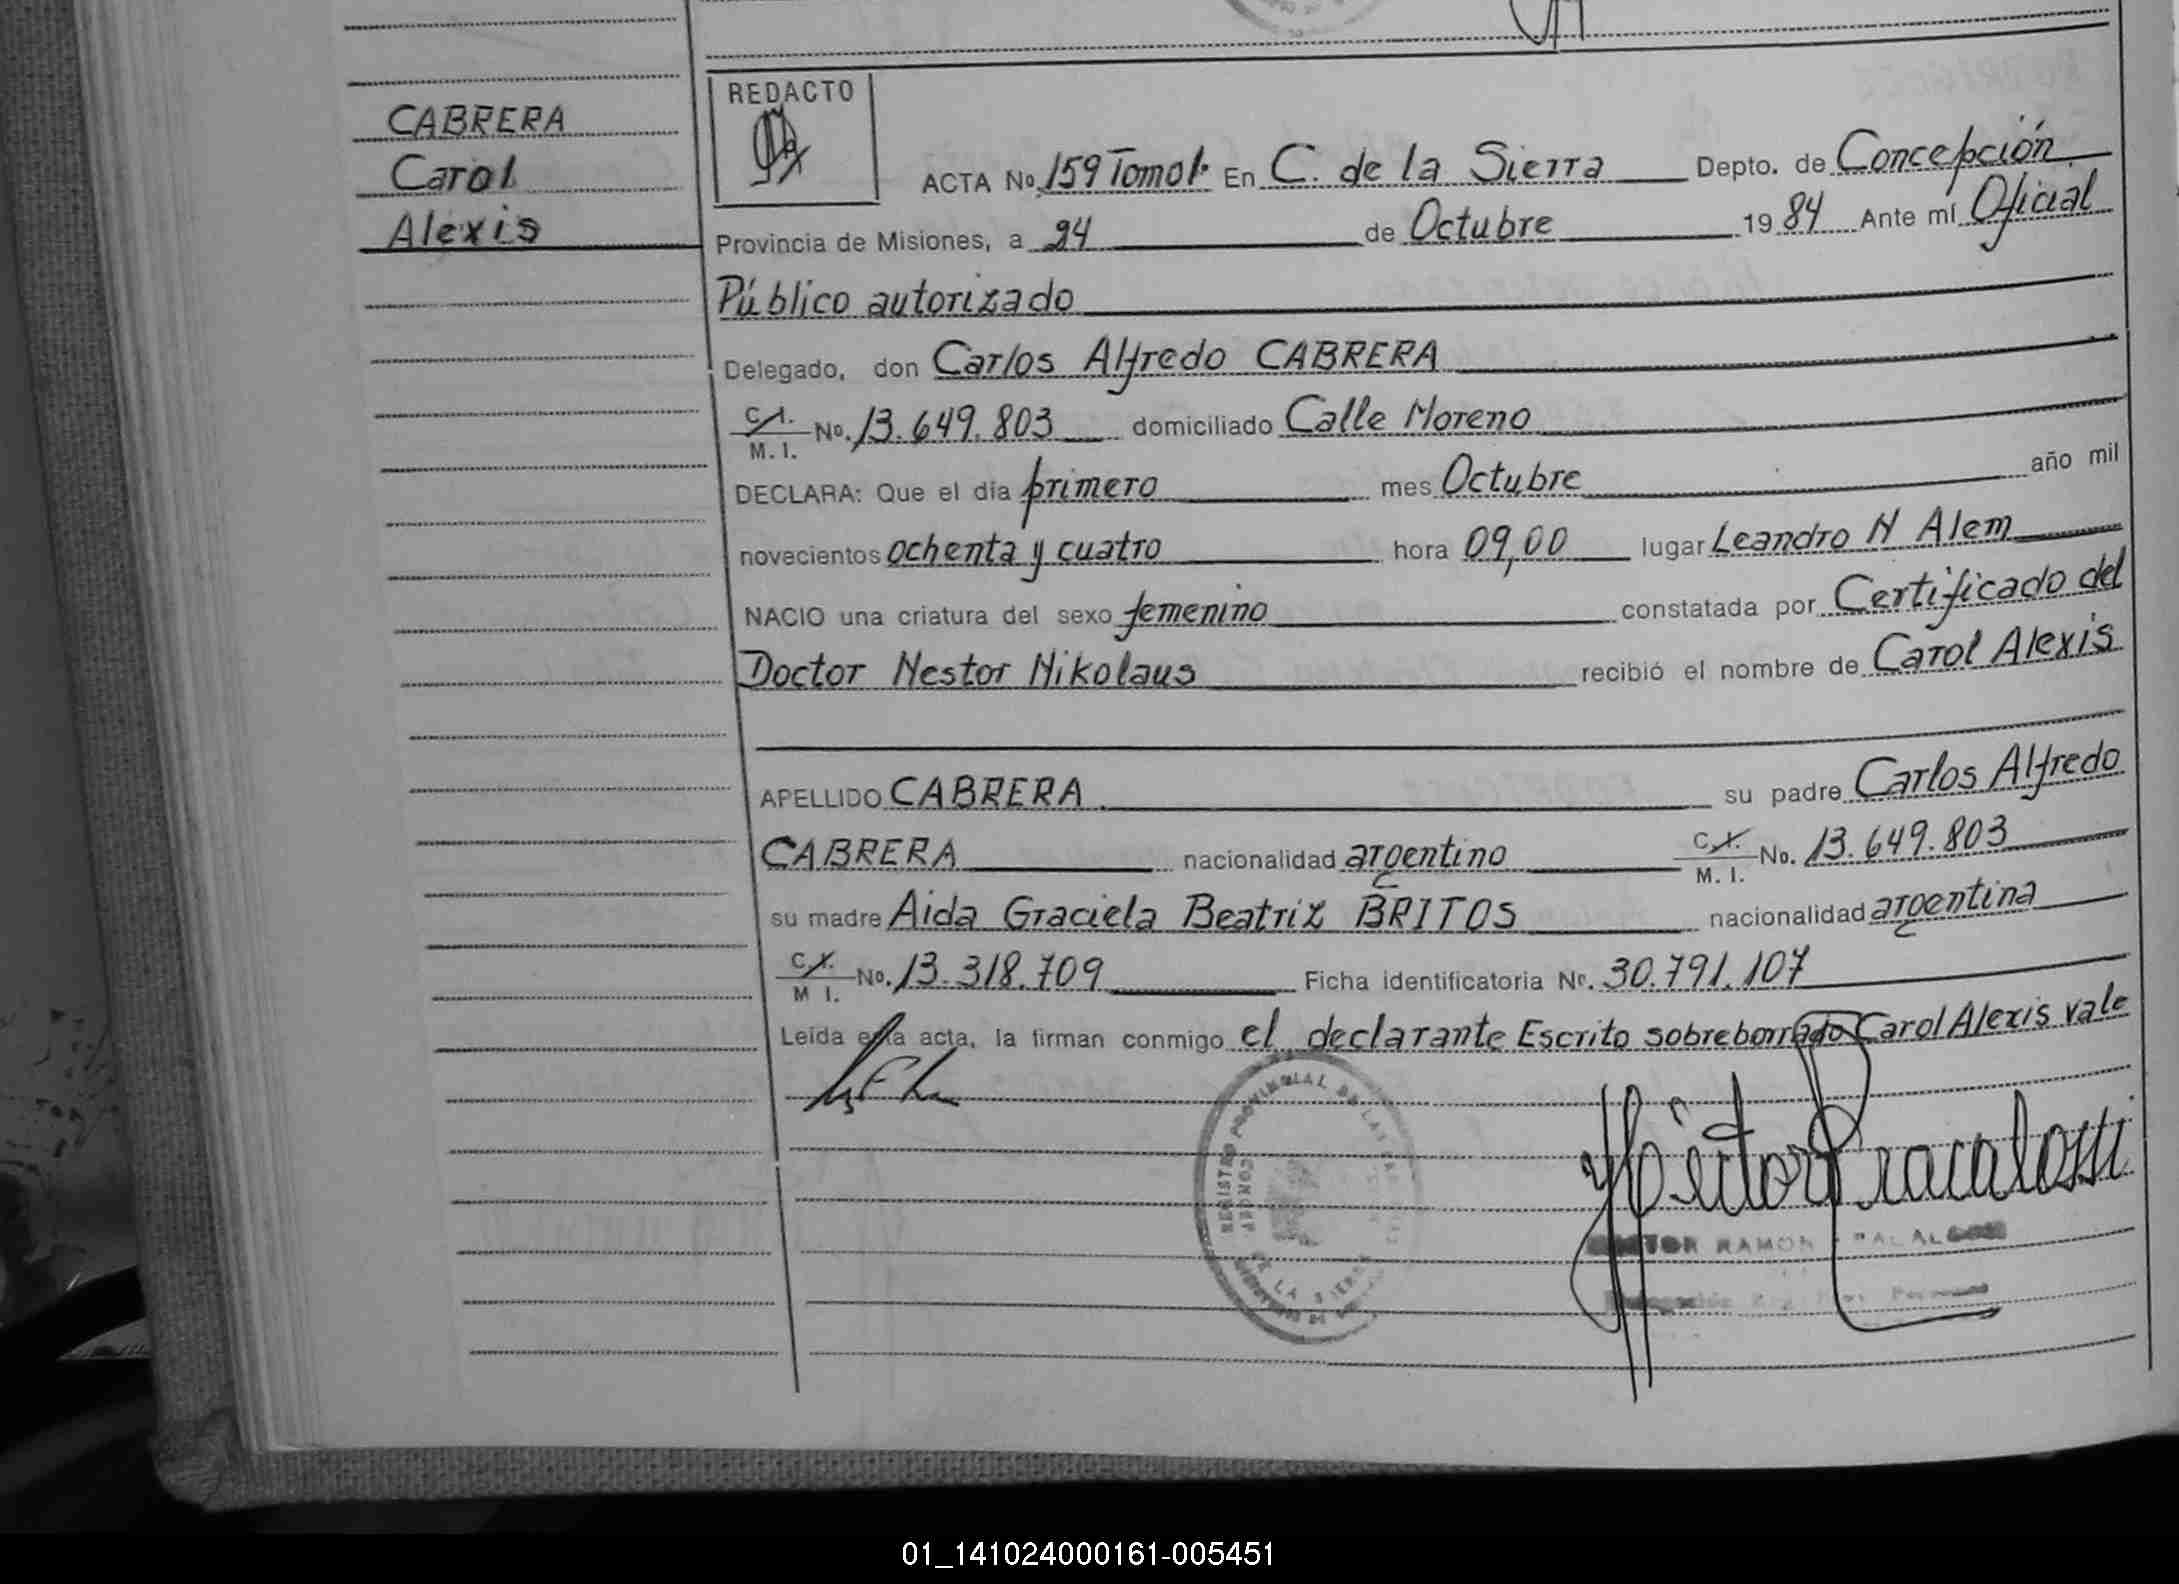 CABRERA
Carol
Alexis
REDACTO
ACTA No. 159 Tomo 1º En C. de la Sierra Depto. de Concepción
Provincia de Misiones, a 24 de Octubre 1984 Ante mí Oficial
Público autorizado
Delegado, don Carlos Alfredo CABRERA
C.I. M. I. No. 13.649.803 domiciliado Calle Moreno
DECLARA: Que el día primero mes Octubre año mil
novecientos ochenta y cuatro hora 09,00 lugar Leandro N Alem
NACIO una criatura del sexo femenino constatada por Certificado del
Doctor Nestor Nikolaus recibió el nombre de Carol Alexis
APELLIDO CABRERA su padre Carlos Alfredo
CABRERA nacionalidad argentino C.I. M. I. No. 13.649.803
su madre Aida Graciela Beatriz BRITOS nacionalidad argentina
C.I. M I. No. 13.318.709 Ficha identificatoria Nº. 30.791.107
Leída esta acta, la firman conmigo el declarante Escrito sobreborrado Carol Alexis vale
REGISTRO PROVINCIAL DE LAS
DE LA SIERRA
RAMON
01_141024000161-005451